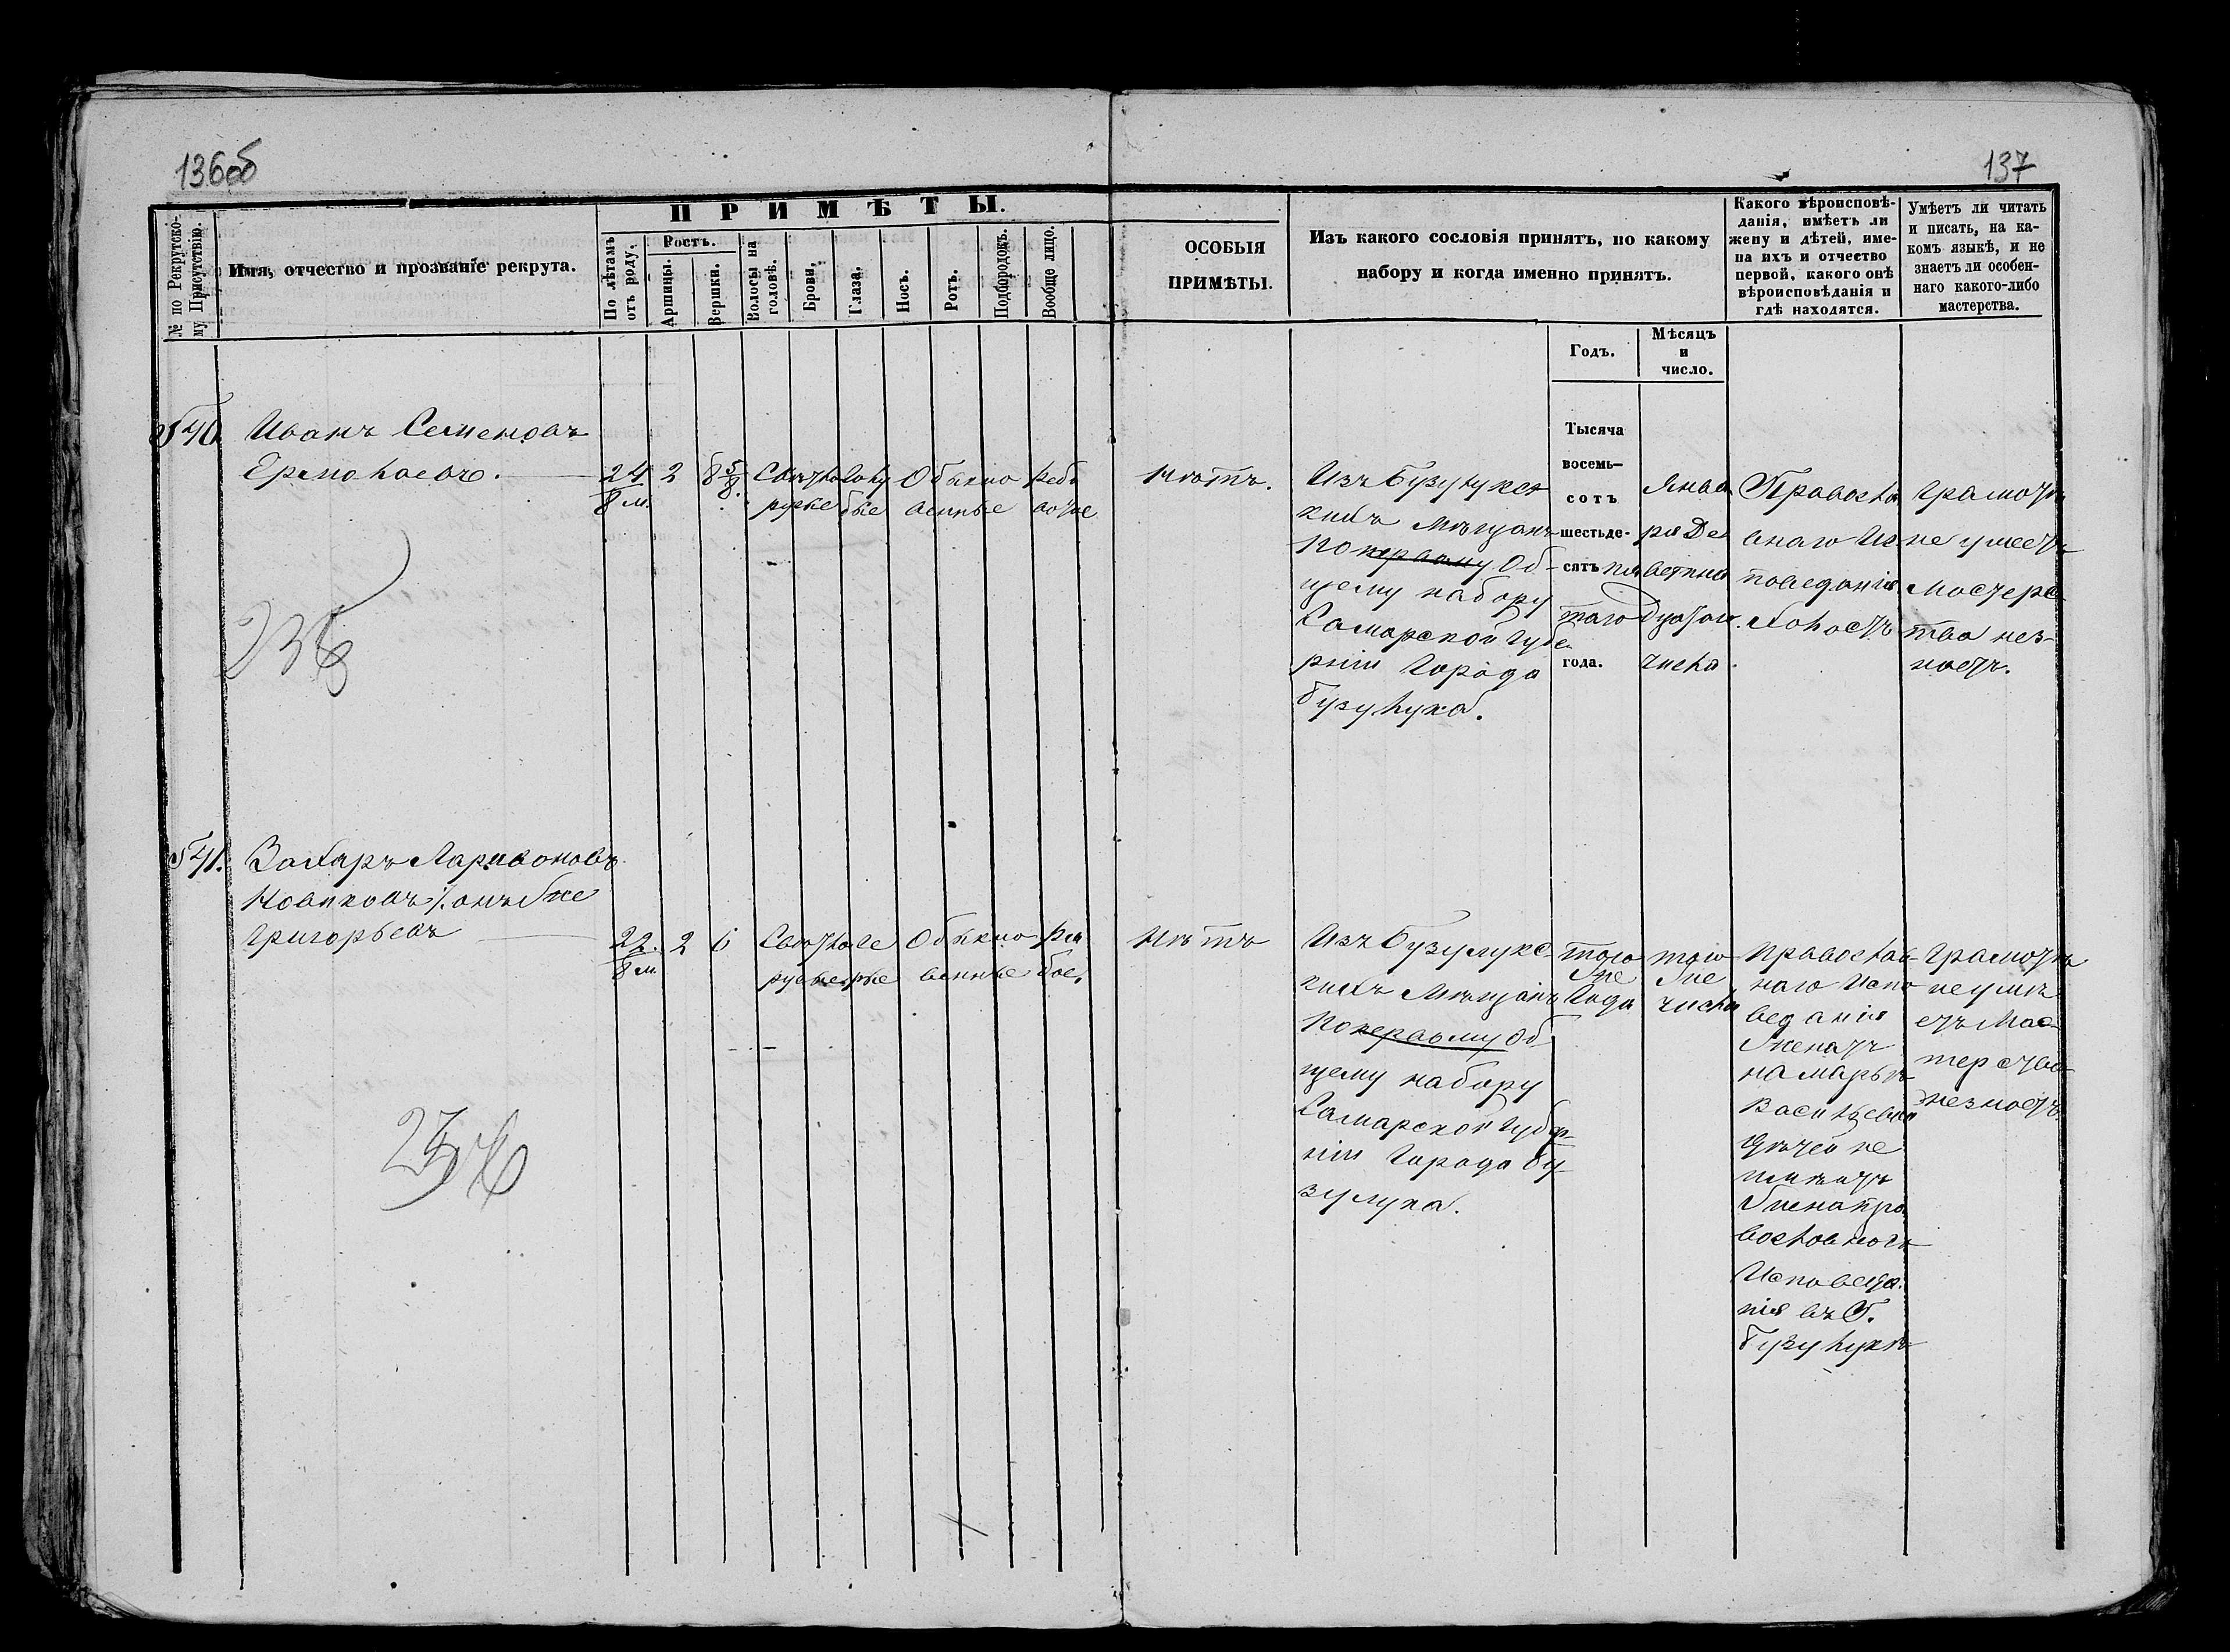 136об
137
ПРИМѢТЫ.
№ по Рекрутско-
му Присутствію.
Имя, отчество и прозваніе рекрута.
По лѣтамъ
отъ роду.
Ростъ.
Аршины.
Вершки.
Волосы на
головѣ.
Брови,
Глаза.
Носъ.
Ротъ.
Подбородокъ.
Вообще лицо.
ОСОБЫЯ
ПРИМѢТЫ.
Изъ какого сословія принятъ, по какому
набору и когда именно принятъ.
Годъ.
Мѣсяцъ
и
число.
Какого вѣроисповѣ-
данія, имѣетъ ли
жену и дѣтей, име-
на ихъ и отчество
первой, какого онѣ
вѣроисповѣданія и
гдѣ находятся.
Умѣетъ ли читать
и писать, на ка-
комъ языкѣ, и не
знаетъ ли особен-
наго какого-либо
мастерства.
540
Иванъ Семеновъ
Ермолаевъ.
24
8 м.
2
6 5/8.
Свѣтло
русые
Голу
бые
Обыкно
венные
Нѣтъ.
Изъ Бузулукс
кихъ Мѣщанъ
По первому Об-
щему набору
Самарской Губе
рніи Города
Бузулука.
Тысяча
восемь-
сотъ
шестьде-
сятъ пя
таго
года.
Янва
ря Де
вятна
дцатаго
числа.
Православ
наго Ис
поведанія
Холостъ
Грамотѣ
не умеетъ
Мастерс
тва нез-
наетъ.
541.
Захаръ Ларивоновъ
Новиковъ /. онъ же
Григорьевъ
22.
8 м
2
6
Свѣтло
русые
Се
рые
Обыкно
венные
Ря
бое.
Нѣтъ
Изъ Бузулукс-
кихъ Мѣщанъ
По первому Об
щему набору
Самарской Губер-
ніи Города Бу
зулука.
того
же
Года
того
же
числа
Православ-
наго Испо
веданія
Женатъ
на Марьѣ
Васильевой
Дѣтей не
имѣетъ
Жена пра
вославнаго
Исповеда
нія въ Г.
Бузулукѣ
Грамотѣ
не умѣ
етъ Мас-
терства
незнаетъ